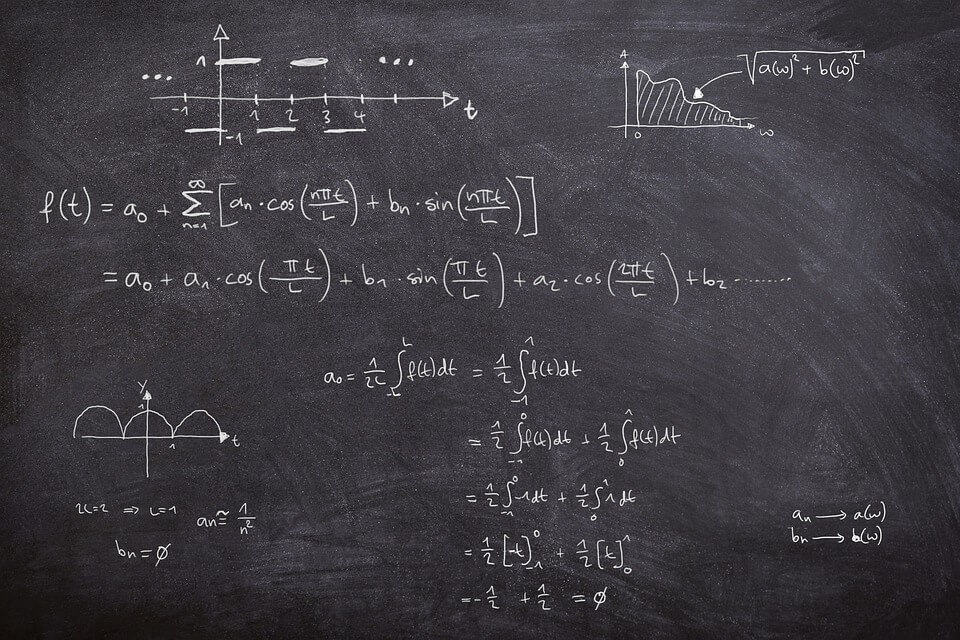 1
... ...
-1 1 2 3 4 t
-1
A
√(a(ω)² + b(ω)²)
0 ω
f(t) = a₀ + ∑ₙ₌₁^∞ [aₙ · cos(nπt/L) + bₙ · sin(nπt/L)]
= a₀ + a₁ · cos(πt/L) + b₁ · sin(πt/L) + a₂ · cos(2πt/L) + b₂ ········
a₀ = 1/2L ∫₋L^L f(t)dt = 1/2 ∫₋₁^1 f(t)dt
= 1/2 ∫₋₁^0 f(t)dt + 1/2 ∫₀^1 f(t)dt
= 1/2 ∫₋₁^0 -1dt + 1/2 ∫₀^1 1dt
= 1/2 [-t]₋₁^0 + 1/2 [t]₀^1
= -1/2 + 1/2 = ∅
y
1
1 t
2L=2 ⇒ L=1
aₙ ≅ 1/n²
bₙ = ∅
aₙ → a(ω)
bₙ → b(ω)